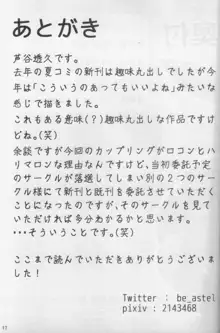 あとがき
芦谷透久です。
去年の夏コミの新刊は趣味丸出しでしたが今
年は「こういうのあってもいいよね」みたいな
感じで描きました。
これもある意味(?)趣味丸出しな作品ですけ
どね。(笑)
余談ですが今回のカップリングがロコンとハ
リマロンな理由なんですけど、当初委託予定
のサークルが落選してしまい別の2つのサーク
ル様にて新刊と既刊を委託させていただくこ
とになったのですが、そのサークルを見てい
ただければ多分わかるかと思います。
・・・そういうことです。(笑)
ここまで読んでいただきありがとうございまし
た!
Twitter : be_astel
pixiv : 2143468
17